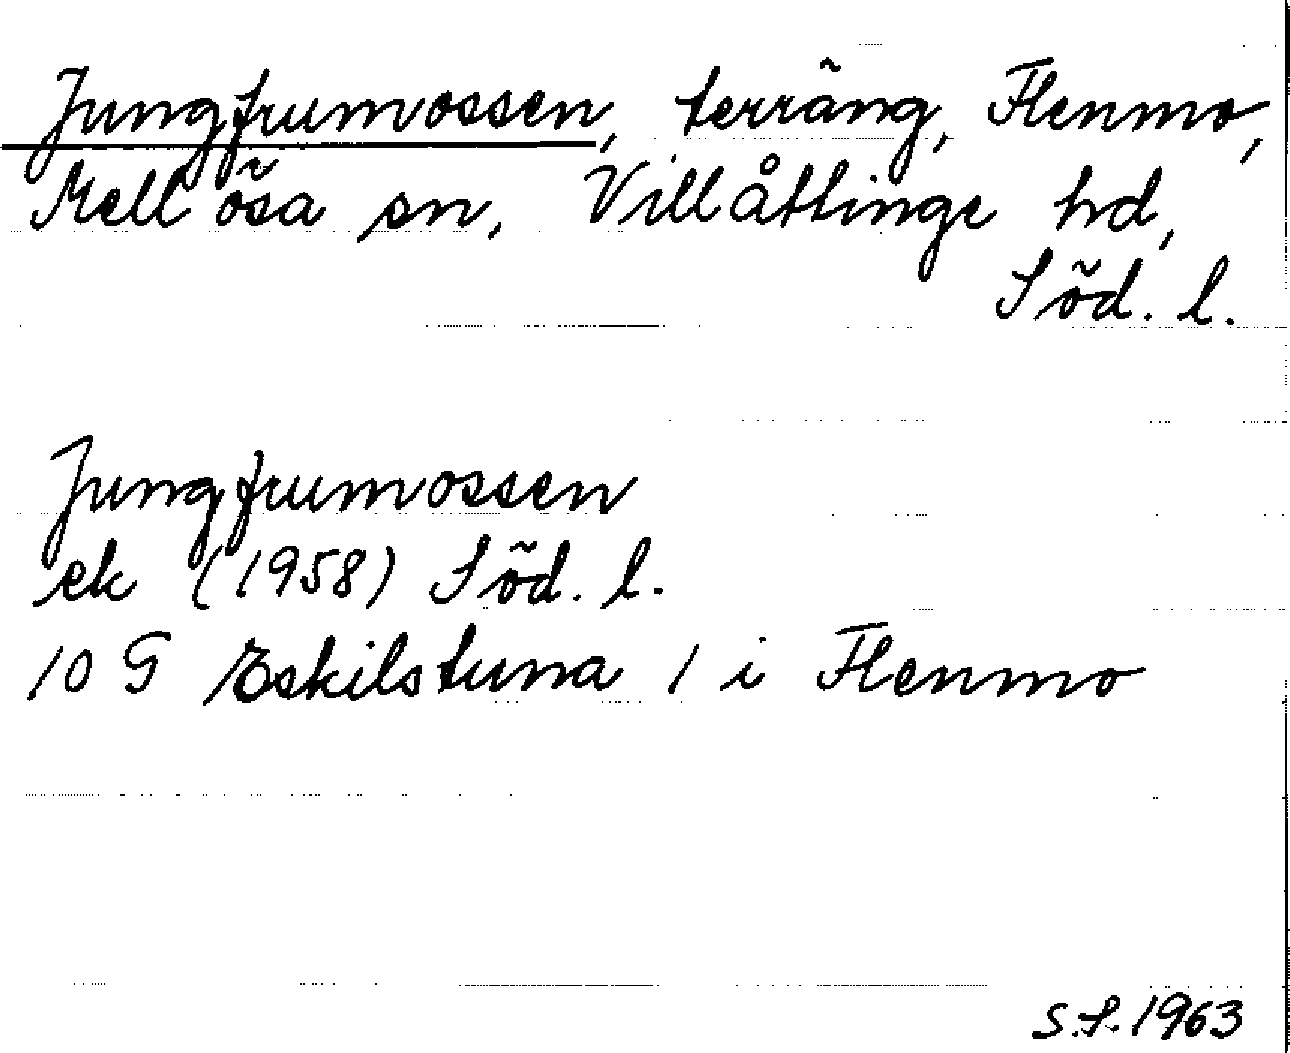 Jungfrumossen, terräng, Flenmo,
Mellösa sn, Villåttinge hd,
Söd. l.
Jungfrumossen
ek (1958) Söd. l.
10 G Eskilstuna 1 i Flenmo
S.S. 1963